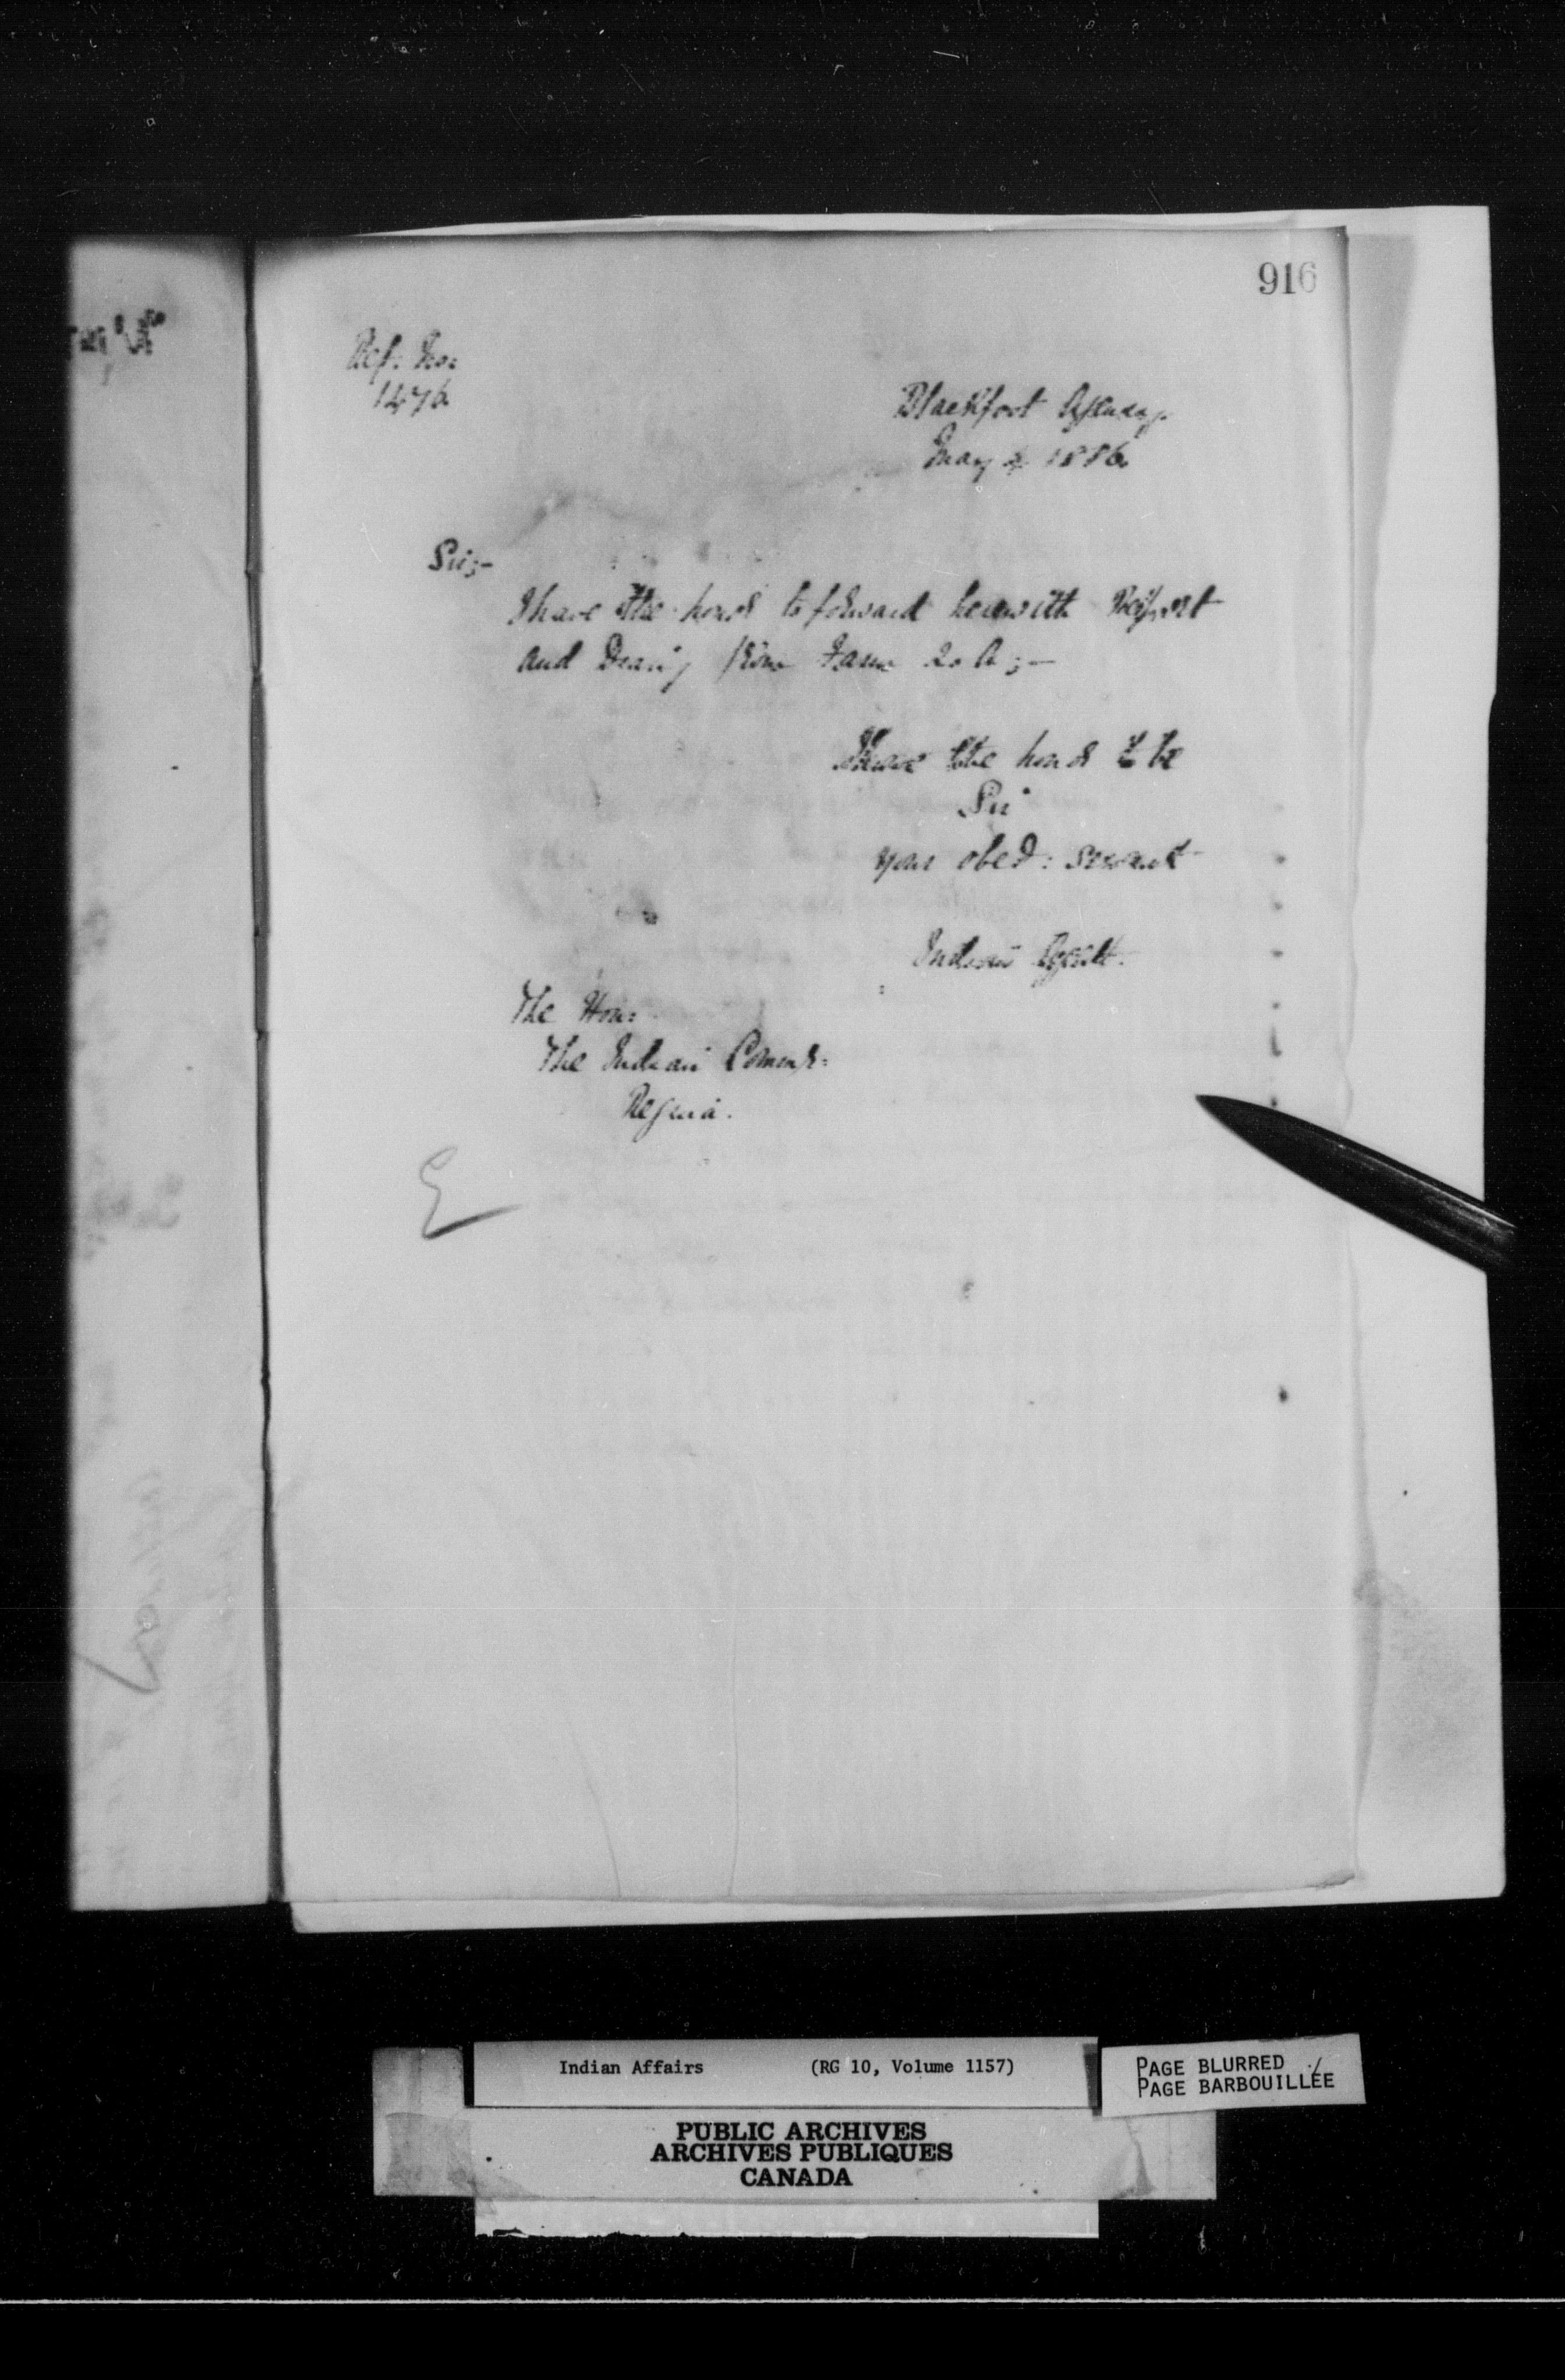 916
Ref: No:
1476
Blackfoot Agency.
May 1886.
Sir;-
I have the honor to forward herewith Report
and Diary from Farm 20 A;-
I have the honor to be
Sir
your obed: servant
Indian Agent.
The Hon:
The Indian Commr:
Regina.
Indian Affairs (RG 10, Volume 1157)
PAGE BLURRED
PAGE BARBOUILLÉE
PUBLIC ARCHIVES
ARCHIVES PUBLIQUES
CANADA